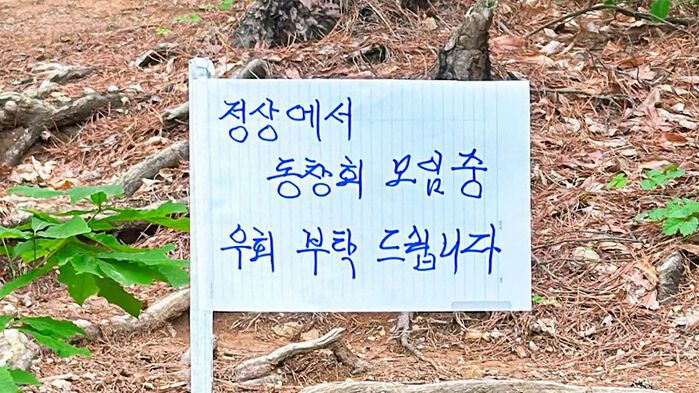 정상에서
동창회 모임 중
우회 부탁 드립니다